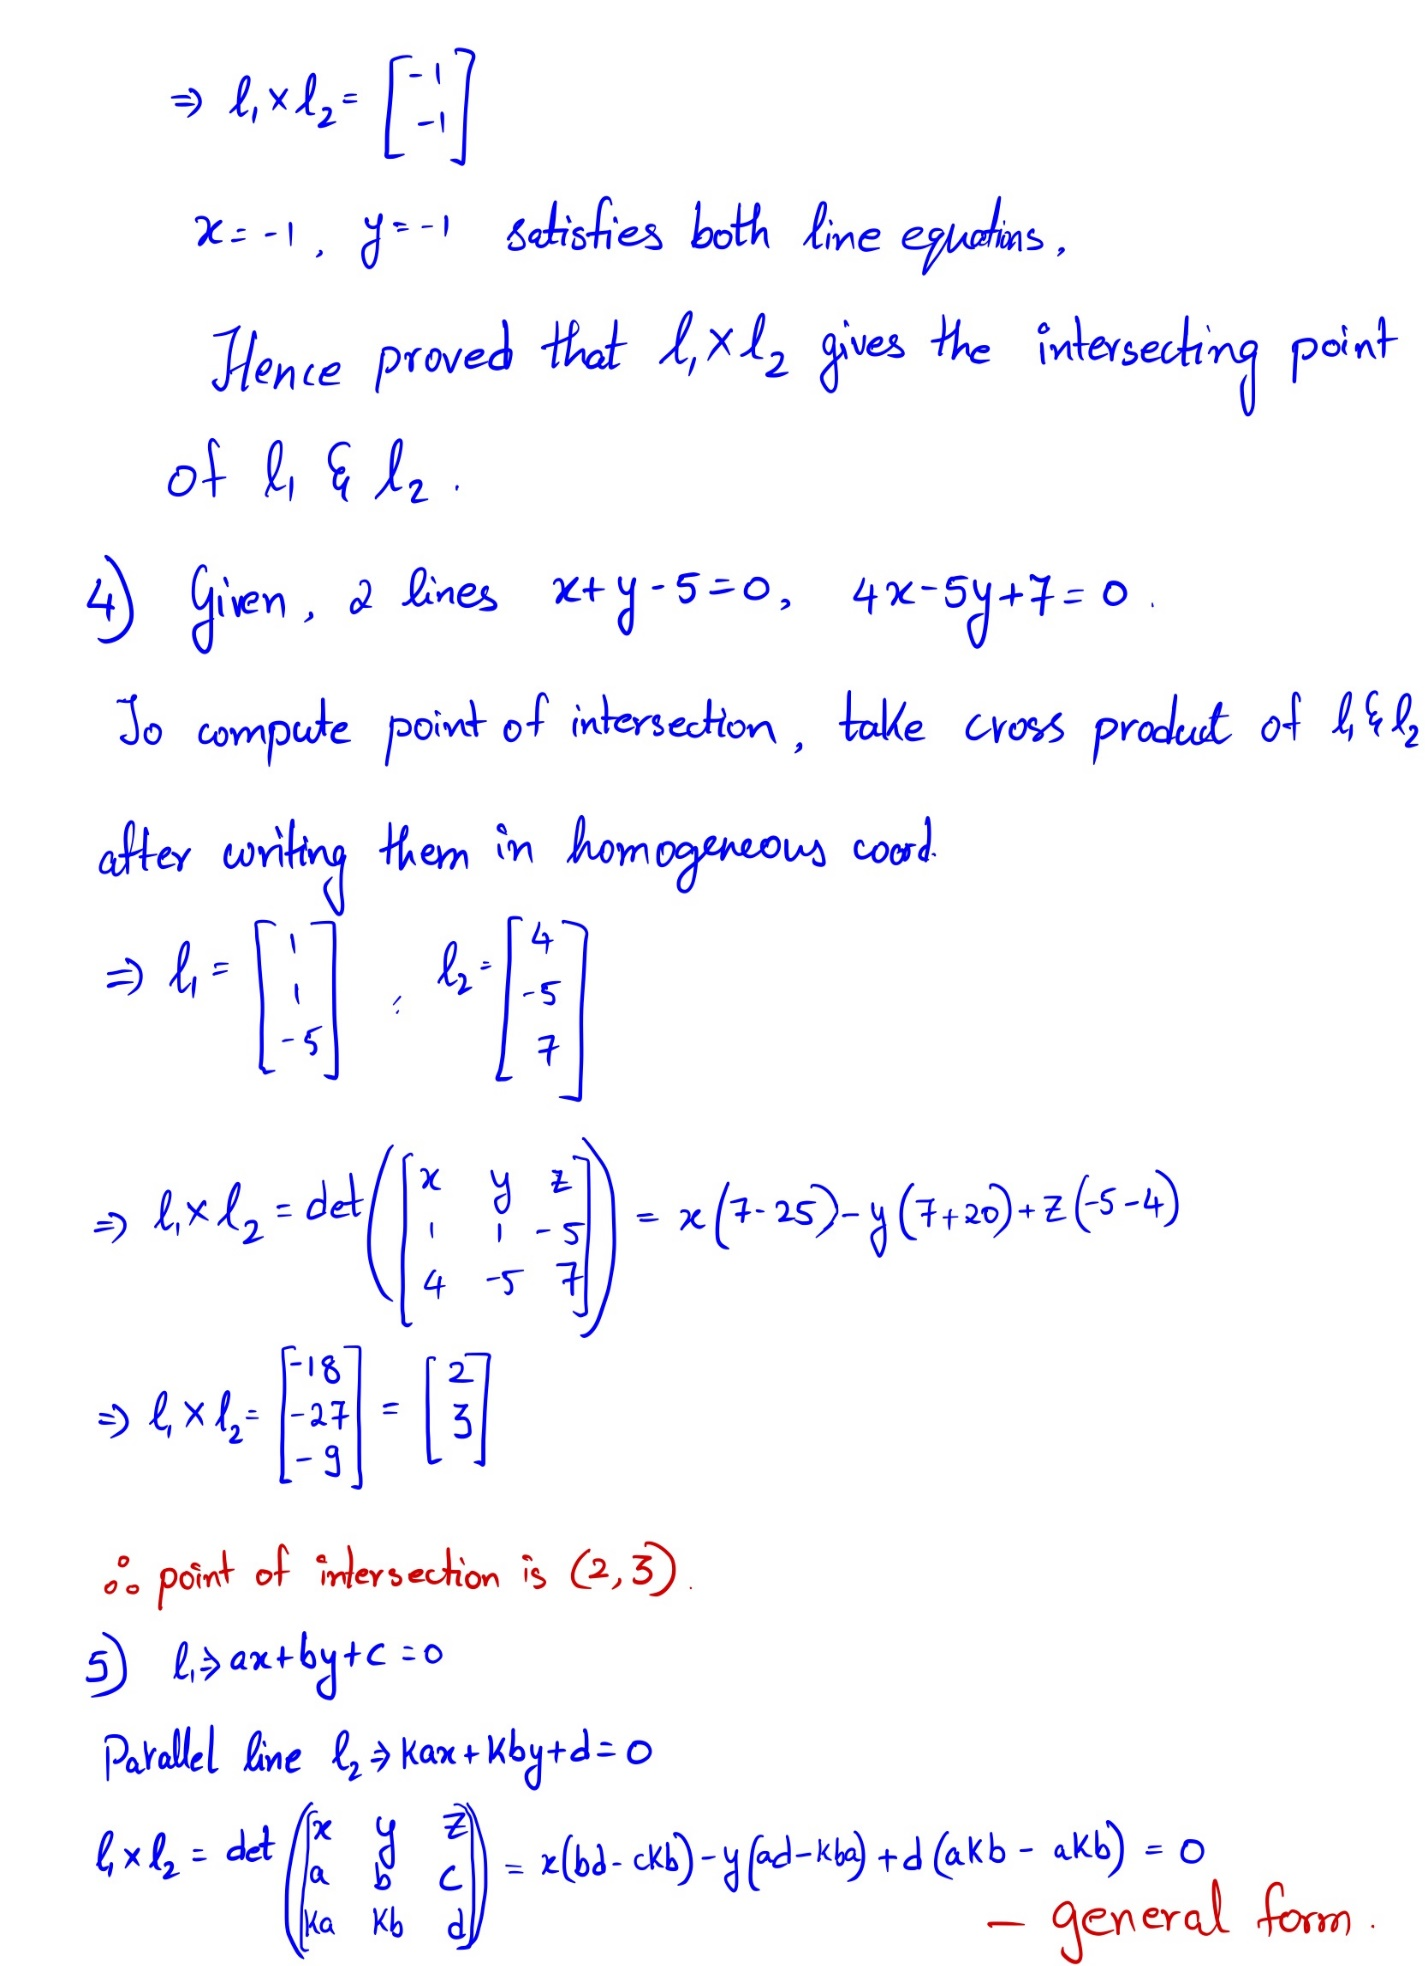 ⇒ l₁×l₂ = [-1 -1]
x = -1, y = -1 satisfies both line equations.
Hence proved that l₁×l₂ gives the intersecting point
of l₁ & l₂.
4) Given, 2 lines x+y-5=0, 4x-5y+7=0.
To compute point of intersection, take cross product of l₁ & l₂
after writing them in homogeneous coord.
⇒ l₁ = [1 1 -5] , l₂ = [4 -5 7]
⇒ l₁×l₂ = det([x y z; 1 1 -5; 4 -5 7]) = x(7-25)-y(7+20)+z(-5-4)
⇒ l₁×l₂ = [-18 -27 -9] = [2 3]
∴ point of intersection is (2,3).
5) l₁ ⇒ ax+by+c=0
Parallel line l₂ ⇒ kax+kby+d=0
l₁×l₂ = det([x y z; a b c; ka kb d]) = x(bd-ckb)-y(ad-kba)+d(akb-akb) = 0
- general form.